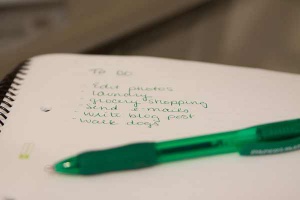 To Do
- Edit photos
- laundry
- grocery shopping
- send e-mails
- write blog post
- walk dogs